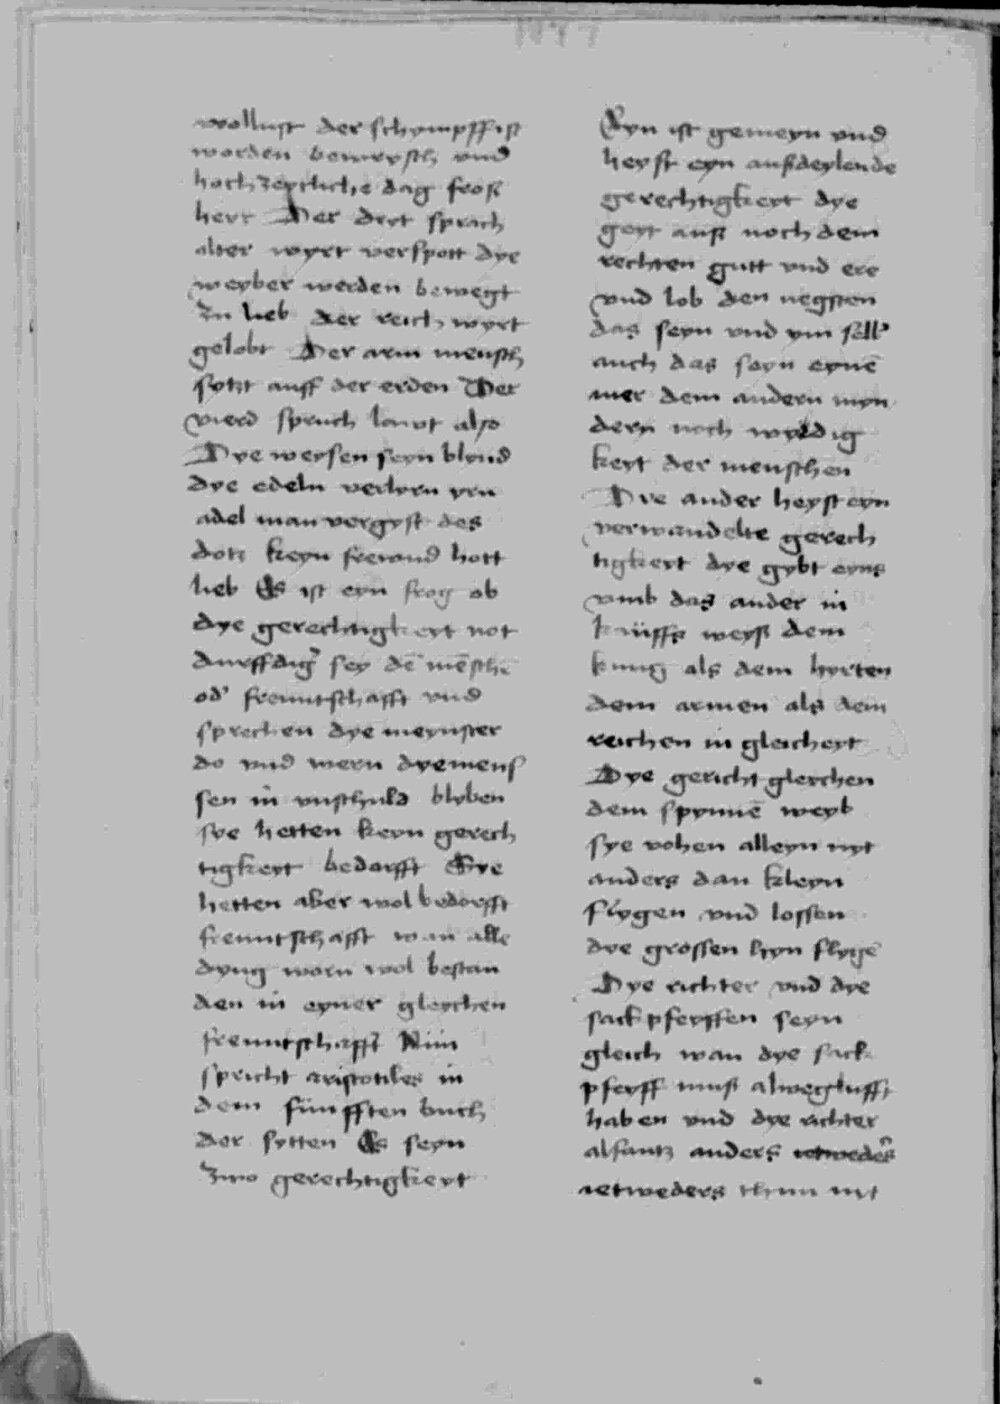 wollust der schympff ist
worden bewrysch vnd
hochzeytliche dag froß
herr Der dryt sprach
alter wyrt verspott dye
weyber werden bewegt
zu lieb der reich wyrt
gelobt Der arm mensch
sytzt auff der erden Der
vierd spruch lauvt also
Dye weysen seyn blynd
dye edeln verlyrn yrn
adel man vergyst des
dotz keyn frevnd hott
lieb Es ist eyn frog ob
dye gerechtigkeyt not
durffdig sey dē mēschē
od' freuntschafft vnd
sprechen dye meynster
do vnd wern dye mens
sen in vnschuld blyben
sye hetten keyn gerech
tigkeyt bedorfft Sye
hetten aber wol bedorfft
freuntschafft wan alle
dyng worn wol bestan
den in eyner gleychen
freuntschafft Nun
spricht aristotiles in
dem fünfften buch
der sytten Es seyn
zwo gerechtigkeyt
Eyn ist gemeyn vnd
heyst eyn außdeylende
gerechtigkeyt dye
geyt auß noch dem
rechten gutt vnd ere
vnd lob den negsten
das seyn vnd ym selb'
auch das seyn eynē
mer dem andern myn
dern noch wyrdig
keyt der menschen
Dye ander heyst eyn
verwandelte gerech
tigkeyt dye gybt eyns
vmb das ander in
kauffs weyß dem
kunig als dem hyrten
dem armen als dem
reichen in gleicheyt
Dye gericht gleychen
dem spynnē weyb
sye vohen alleyn nyt
anders dan kleyn
flygen vnd lossen
dye grossen hyn flygē
Dye richter vnd dye
sackpfeyffen seyn
gleich wan dye sack
pfeyff muß alweg lufft
haben vnd dye richter
alfantz anders ietweders
ietweders thun nit